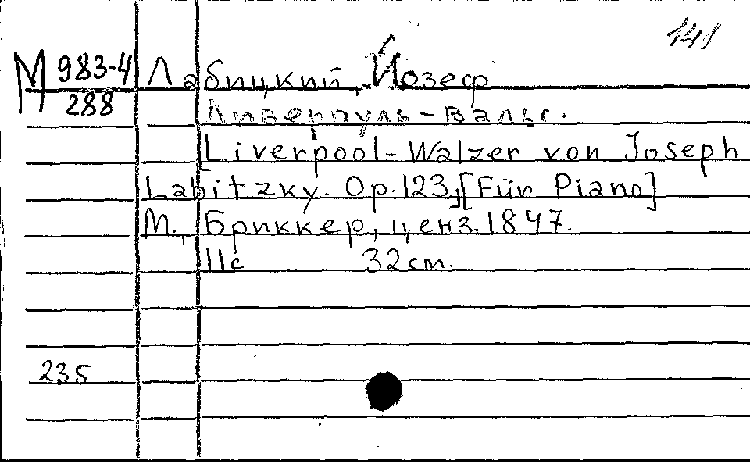 141
М 983-4
288
Лабицкий, Йозеф
Ливерпуль-вальс.
[Liverpool-Walzer von Joseph
Labitzky. Op. 123, [Für Piano]
М., Бриккер, ценз. 1847.
11с 32cm.
235